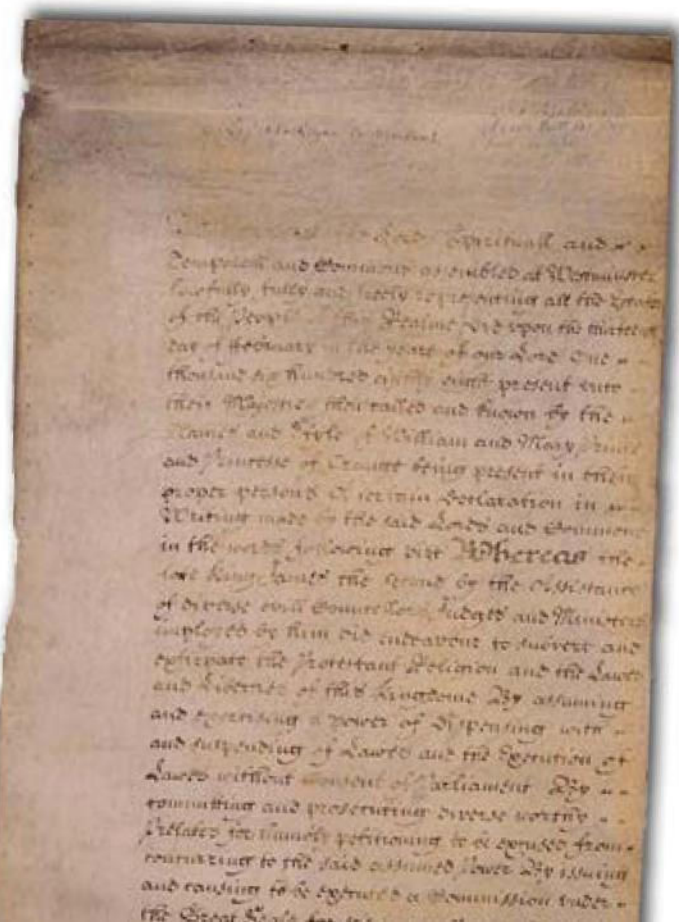 Lords Spirituall and
Temporall and Commons assembled at Westminster
lawfully fully and freely representing all the Estates
of the People of this Realme did upon the thirteenth
day of February in the yeare of our Lord One
thousand six hundred eighty eight present unto
their Majesties then called and known by the
Names and Style of William and Mary Prince
and Princesse of Orange being present in their
proper persons A certain Declaration in
Writing made by the said Lords and Commons
in the words following vizt Whereas the
late King James the Second by the Assistance
of diverse evill Councellors Judges and Ministers
imployed by him did endeavour to subvert and
extirpate the Protestant Religion and the Lawes
and Liberties of this Kingdome By assuming
and exercising a Power of Dispensing with
and suspending of Lawes and the Execution of
Lawes without Consent of Parliament By
committing and prosecuting diverse worthy
Prelates for humbly petitioning to be excused from
concurring to the said assumed Power By issuing
and causing to be executed a Commission under
the Great Seale for